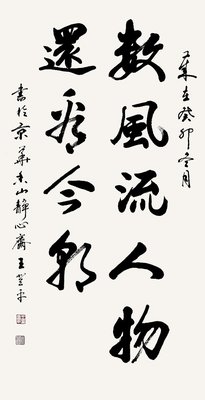 歲在癸卯冬月
數風流人物
還看今朝
書於京華香山靜心齋王